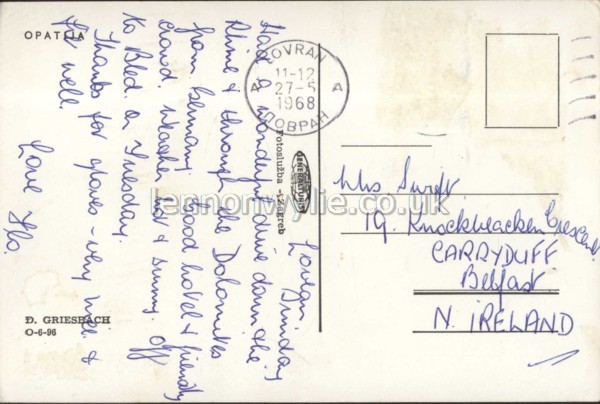 OPATIJA
Lovran, Sunday
Have a wonderful drive down the
Rhine & through the Dolomites
from Germany. Good hotel & friendly
crowd. Weather hot & sunny. Off
to Bled on Tuesday.
Thanks for gloves - very nice &
fit well.
Love Flo.
Đ. GRIESBACH
O-6-96
Fotoslužba - Zagreb
LOVRAN
11-12
27-5
1968
A A
ЛОВРАН
Mrs Swift
19. Knockbracken Crescent
CARRYDUFF
Belfast
N. IRELAND
lennonwylie.co.uk